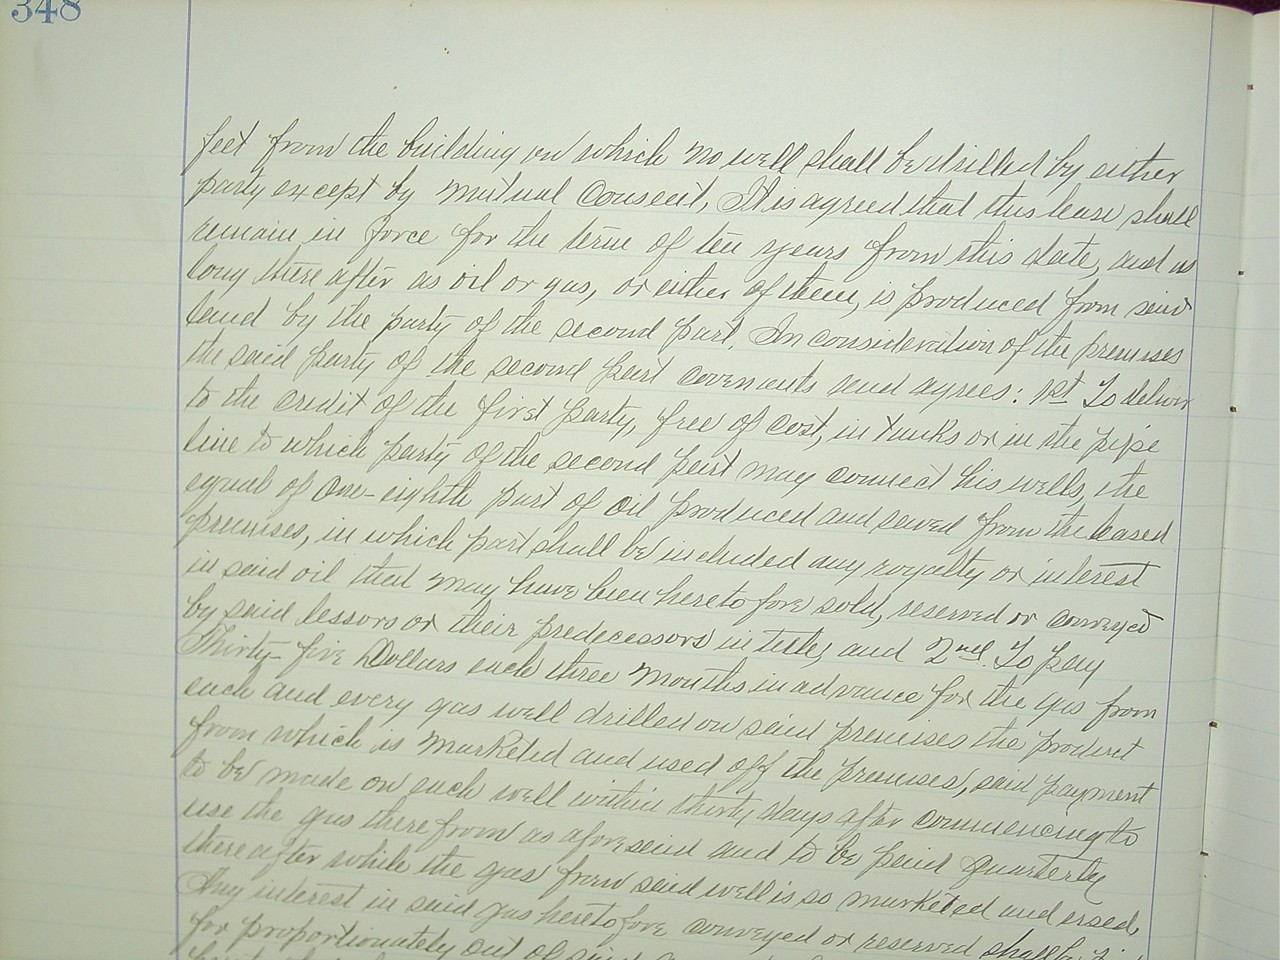 348
feet from the building on which no well shall be drilled by either
party except by mutual consent, It is agreed that this lease shall
remain in force for the term of ten years from this date, and as
long there after as oil or gas, or either of them, is produced from said
land by the party of the second part. In consideration of the premises
the said party of the second part covenants and agrees: 1st To deliver
to the credit of the first party, free of cost, in tanks or in the pipe
line to which party of the second part may connect his wells, the
equal of one-eighth part of oil produced and saved from the leased
premises, in which part shall be included any royalty or interest
in said oil that may have been heretofore sold, reserved or conveyed
by said lessors or their predecessors in title, and 2nd. To pay
Thirty-five Dollars each three months in advance for the gas from
each and every gas well drilled on said premises the product
from which is marketed and used off the premises, said payment
to be made on each well within thirty days after commencing to
use the gas therefrom as aforesaid and to be paid quarterly
thereafter while the gas from said well is so marketed and used,
Any interest in said gas heretofore conveyed or reserved shall be
for proportionately out of said